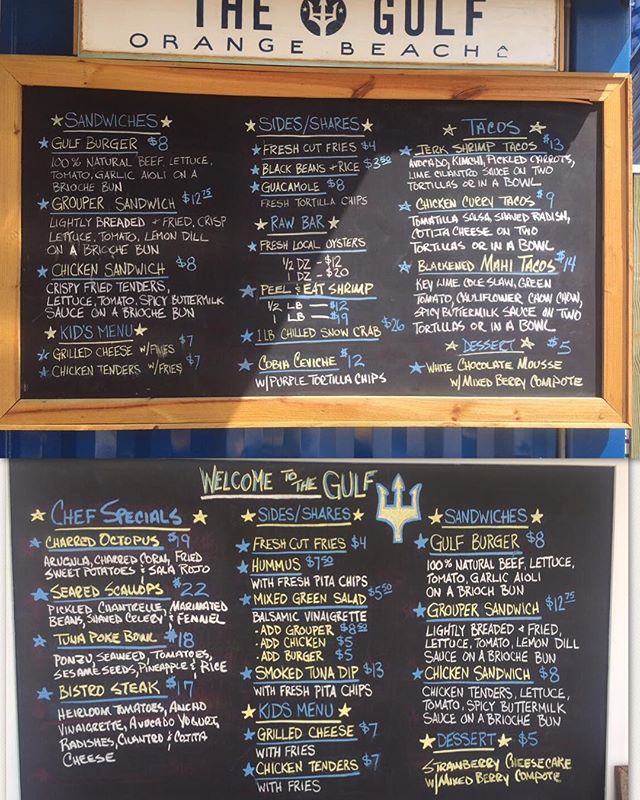 THE GULF
ORANGE BEACH
SANDWICHES
GULF BURGER $8
100% NATURAL BEEF, LETTUCE,
TOMATO, GARLIC AIOLI ON A
BRIOCHE BUN
GROUPER SANDWICH $12.75
LIGHTLY BREADED + FRIED, CRISP
LETTUCE, TOMATO, LEMON DILL
ON A BRIOCHE BUN
CHICKEN SANDWICH $8
CRISPY FRIED TENDERS,
LETTUCE, TOMATO, SPICY BUTTERMILK
SAUCE ON A BRIOCHE BUN
KID'S MENU
GRILLED CHEESE W/FRIES $7
CHICKEN TENDERS W/FRIES $7
SIDES/SHARES
FRESH CUT FRIES $4
BLACK BEANS + RICE $3.50
GUACAMOLE $8
FRESH TORTILLA CHIPS
RAW BAR
FRESH LOCAL OYSTERS
1/2 DZ - $12
1 DZ - $20
PEEL & EAT SHRIMP
1/2 LB - $12
1 LB - $19
1LB CHILLED SNOW CRAB $26
COBIA CEVICHE $12
W/PURPLE TORTILLA CHIPS
TACOS
JERK SHRIMP TACOS $13
AVOCADO, KIMCHI, PICKLED CARROTS,
LIME CILANTRO SAUCE ON TWO
TORTILLAS OR IN A BOWL
CHICKEN CURRY TACOS $9
TOMATILLA SALSA, SHAVED RADISH,
COTITA CHEESE ON TWO
TORTILLAS OR IN A BOWL
BLACKENED MAHI TACOS $14
KEY LIME COLE SLAW, GREEN
TOMATO, CAULIFLOWER CHOW CHOW,
SPICY BUTTERMILK SAUCE ON TWO
TORTILLAS OR IN A BOWL
DESSERT $5
WHITE CHOCOLATE MOUSSE
W/MIXED BERRY COMPOTE
WELCOME TO THE GULF
CHEF SPECIALS
CHARRED OCTOPUS $19
ARUGULA, CHARRED CORN, FRIED
SWEET POTATOES & SALA ROJO
SEARED SCALLOPS $22
PICKLED CHANTRELLE, MARINATED
BEANS, SHAVED CELERY & FENNEL
TUNA POKE BOWL $18
PONZU, SEAWEED, TOMATOES,
SESAME SEEDS, PINEAPPLE & RICE
BISTRO STEAK $17
HEIRLOOM TOMATOES, ANCHO
VINAIGRETTE, AVOCADO YOGURT,
RADISHES, CILANTRO & COTITA
CHEESE
SIDES/SHARES
FRESH CUT FRIES $4
HUMMUS $7.50
WITH FRESH PITA CHIPS
MIXED GREEN SALAD $5.50
BALSAMIC VINAIGRETTE
-ADD GROUPER $8.50
-ADD CHICKEN $5
-ADD BURGER $5
SMOKED TUNA DIP $13
WITH FRESH PITA CHIPS
KIDS MENU
GRILLED CHEESE $7
WITH FRIES
CHICKEN TENDERS $7
WITH FRIES
SANDWICHES
GULF BURGER $8
100% NATURAL BEEF, LETTUCE,
TOMATO, GARLIC AIOLI
ON A BRIOCH BUN
GROUPER SANDWICH $12.75
LIGHTLY BREADED + FRIED,
LETTUCE, TOMATO, LEMON DILL
SAUCE ON A BRIOCHE BUN
CHICKEN SANDWICH $8
CHICKEN TENDERS, LETTUCE,
TOMATO, SPICY BUTTERMILK
SAUCE ON A BRIOCHE BUN
DESSERT $5
STRAWBERRY CHEESECAKE
W/MIXED BERRY COMPOTE